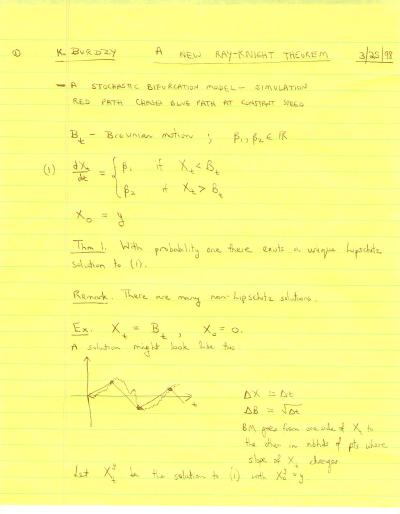 ① K. BURDZY A NEW RAY-KNIGHT THEOREM 3/25/98
– A STOCHASTIC BIFURCATION MODEL – SIMULATION
RED PATH CHASES BLUE PATH AT CONSTANT SPEED
B_t – Brownian motion ; β_1, β_2 ∈ ℝ
(1) dX_t/dt = { β_1 if X_t < B_t
β_2 if X_t > B_t
X_0 = y
Thm 1. With probability one there exists a unique Lipschitz
solution to (1).
Remark. There are many non-Lipschitz solutions.
Ex. X_t = B_t , X_0 = 0.
A solution might look like this:
t
ΔX ≈ Δt
ΔB ≈ √Δt
BM goes from one side of X_t to
the other in nbhds of pts where
slope of X_t changes
Let X_t^y be the solution to (1) with X_0^y = y.